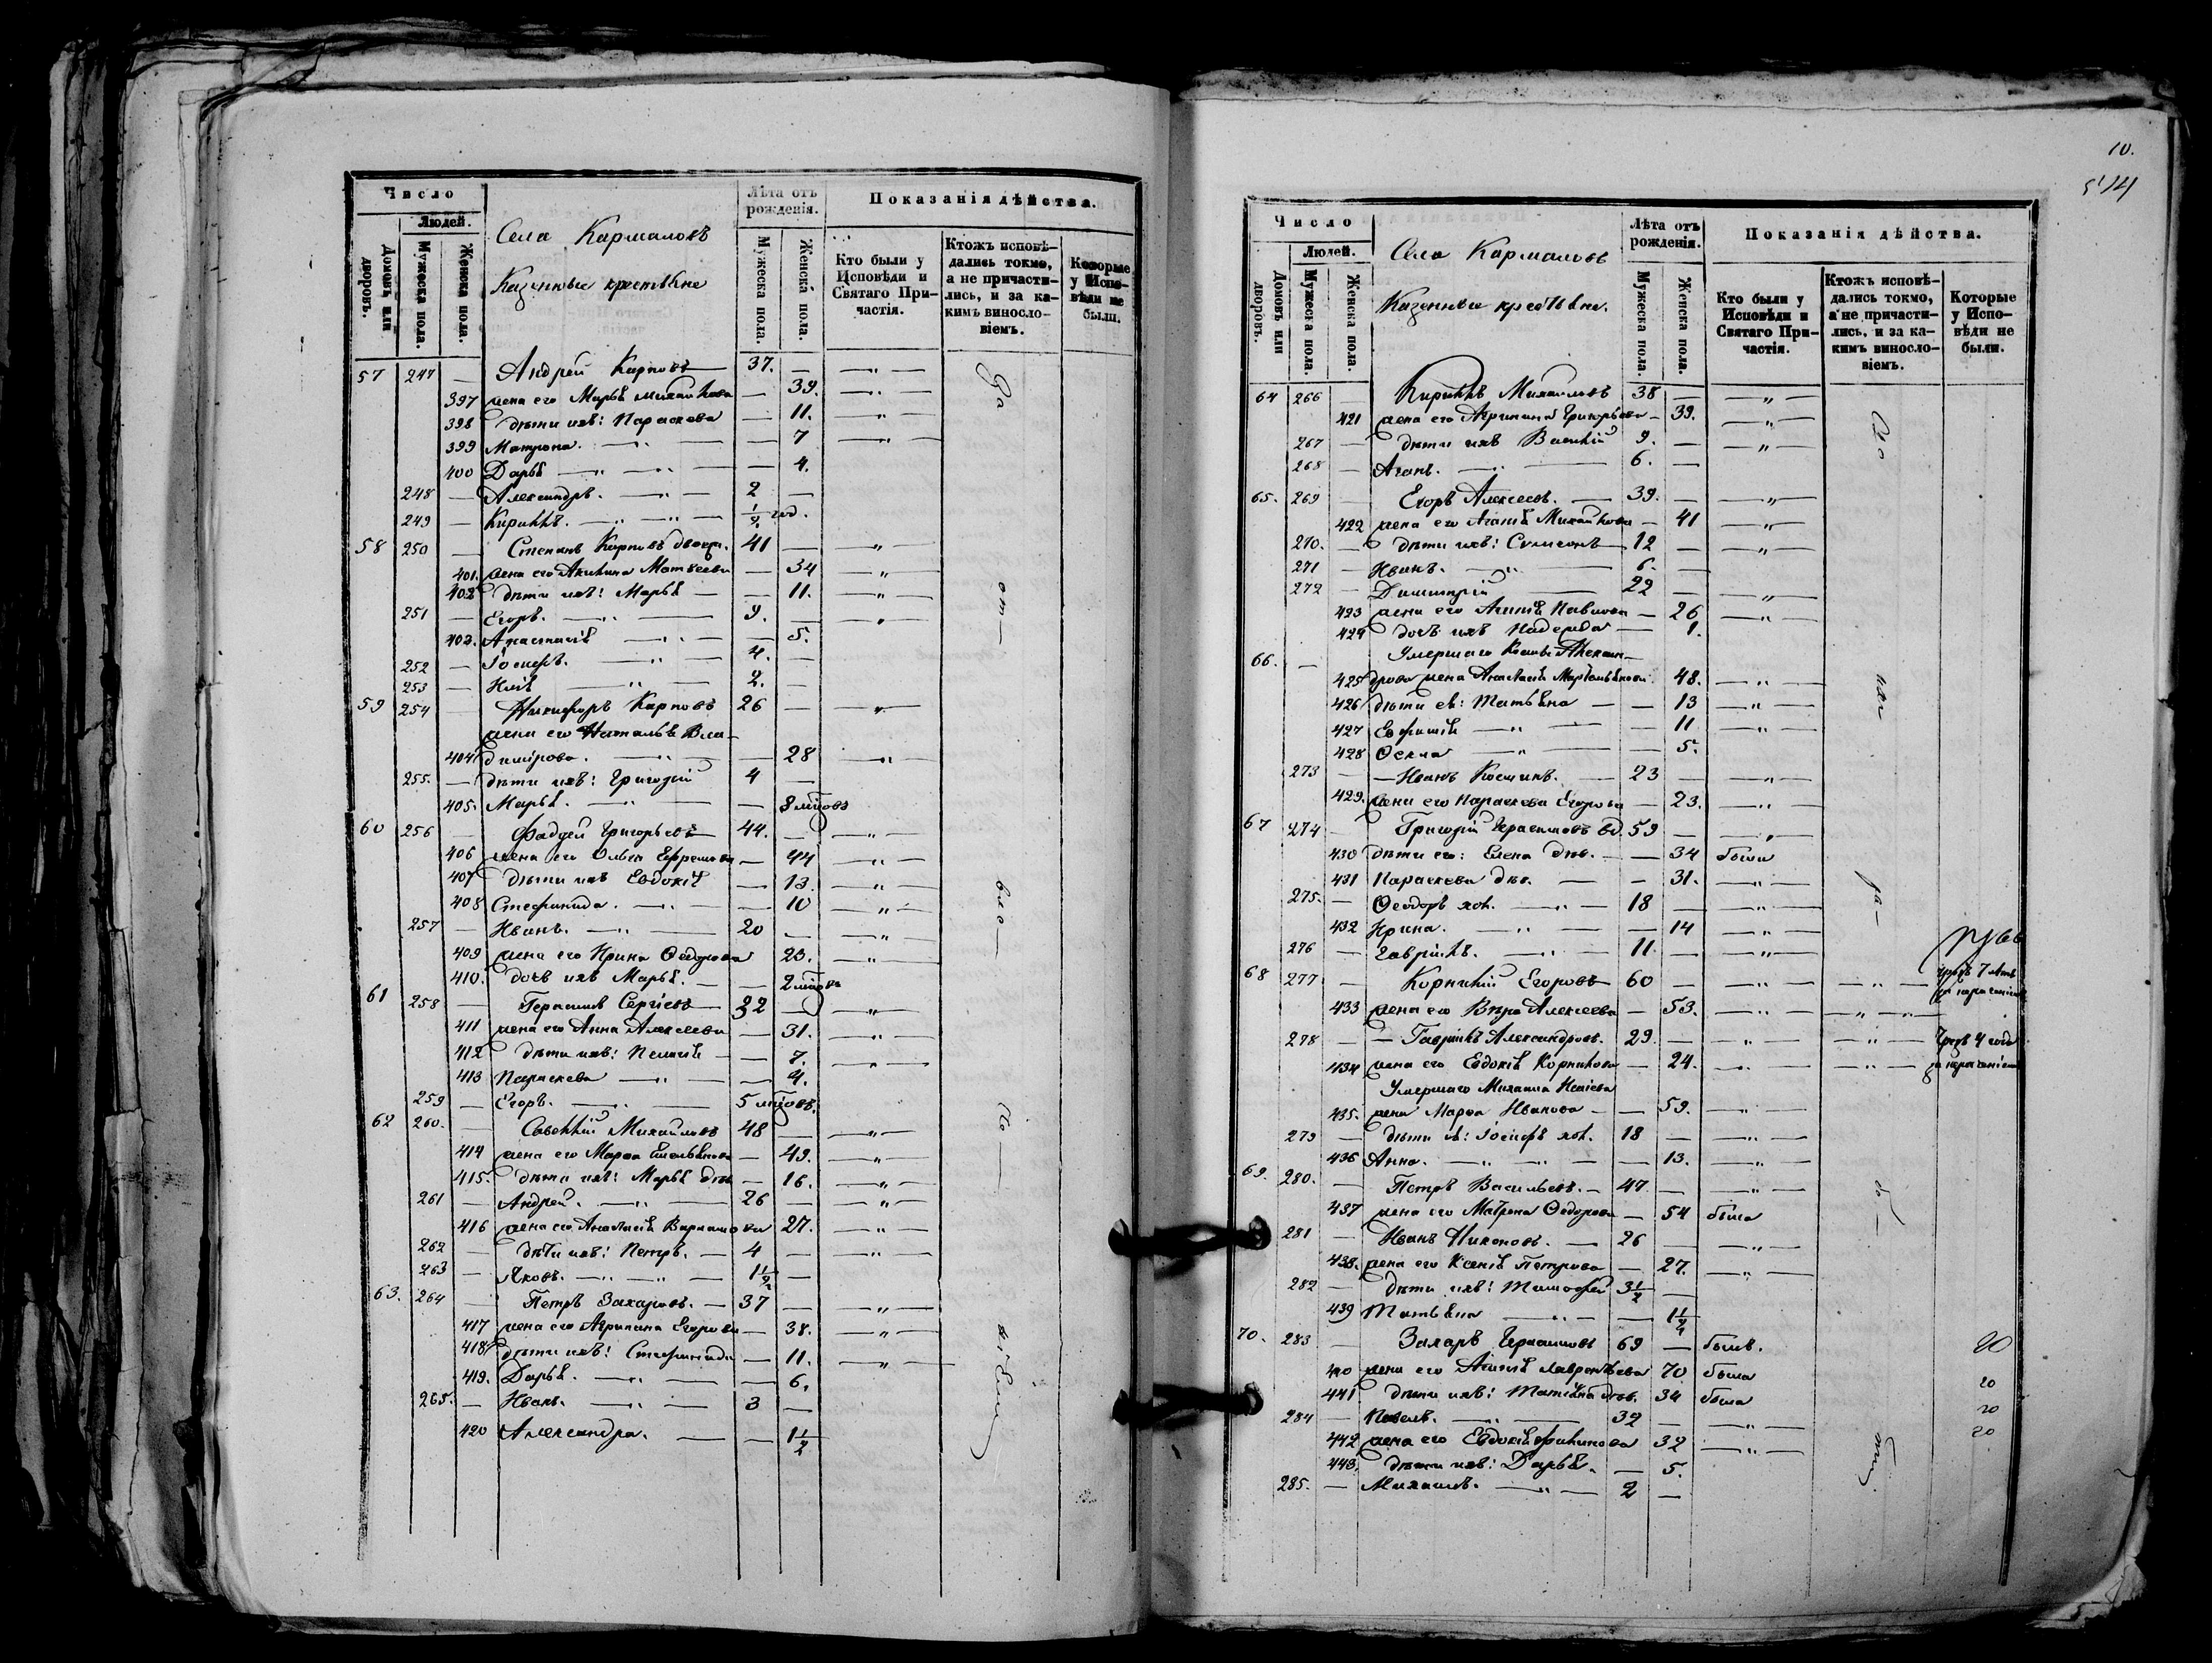 Число
Людей.
Домовъ или дворовъ.
Мужеска пола.
Женска пола.
Села Кармаловъ
Казенные крестьяне
Лѣта отъ рожденія.
Мужеска пола.
Женска пола.
Показанія дѣйства.
Кто были у Исповѣди и Святаго Причастія.
Ктожъ исповѣдались токмо, а не причастились, и за какимъ винословіемъ.
Которые у Исповѣди не были.
57 247 — Андрей Карповъ 37. — —"—
397 жена его Марья Михайлова — 39. —"—
398 дѣти ихъ: Параскева — 11. —"—
399 Матрона. —"— — 7 —"—
400 Дарья —"— —"— — 4.
248 — Александръ. —"— 2 —
249 — Кириллъ. —"— —"— 1/2 год.
58 250 — Степанъ Карповъ 41 — —"—
401. жена его Акилина Матвеева — 34 —"—
402 дѣти ихъ: Марья — — 11. —"—
251 — Егоръ. —"— 9. — —"—
402. Анастасія —"— — 5.
252 — Іосифъ. —"— 4. —
253 — Илія —"— 2. —
59 254 — Никифоръ Карповъ 26 — —"—
жена его Наталья Вла-
404 димірова. —"— — 28 —"—
255. — дѣти ихъ: Григорій 4 —
405. Марья. —"— — 8 мѣсяцовъ
60 256 — Фаддей Григорьевъ 44. — —"—
406 жена его Ольга Ефремова — 44 —"—
407 дѣти ихъ Евдокія — 13. —"—
408 Стефанида. —"— — 10 —"—
257 — Иванъ. —"— 20 — —"—
409 жена его Ирина Ѳедорова 23. —"—
410. дочь ихъ Марья. — — 2 мѣсяца
61 258 — Герасимъ Сергіевъ 32 — —"—
411 жена его Анна Алексеева — 31. —"—
412 дѣти ихъ: Пелагія — — 7. —"—
413 Параскева —"— — 4.
259 — Егоръ. —"— 5 мѣсяцовъ.
62 260. — Савелій Михайловъ 48 — —"—
414 жена его Марѳа Емельянова — 49. —"—
415. дѣти ихъ: Марья дѣв. — 16. —"—
261 — Андрей. —"— 26 — —"—
416 жена его Анастасія Варламова 27. —"—
262 — дѣти ихъ: Петръ. — 4 — —"—
263 — Яковъ. —"— —"— 1 1/2 —
63. 264 — Петръ Захаровъ. — 37 — —"—
417 жена его Агрипина Егорова — 38. —"—
418 дѣти ихъ: Стефанида — 11. —"—
419. Дарья. —"— — 6.
265. — Иванъ. —"— 3 —
420 Александра. — — 1 1/2
10.
Число
Людей.
Домовъ или дворовъ.
Мужеска пола.
Женска пола.
Села Кармаловъ
Казенные крестьяне.
Лѣта отъ рожденія.
Мужеска пола.
Женска пола.
Показанія дѣйства.
Кто были у Исповѣди и Святаго Причастія.
Ктожъ исповѣдались токмо, а не причастились, и за какимъ винословіемъ.
Которые у Исповѣди не были.
64 266 — Кириллъ Михайловъ 38 — —"—
421 жена его Агрипина Григорьева — 39. —"—
267 — дѣти ихъ Василій 9. — —"—
268 — —"— 6. —
65. 269 — Егоръ Алексеевъ. — 39. — —"—
422 жена его Агапія Михайлова — 41 —"—
270. — дѣти ихъ: Симеонъ 12 — —"—
271 — Иванъ. —"— 6. —
272 — Димитрій 22 — —"—
423 жена его Агапія Павлова — 26 —"—
424 дочь ихъ Надежда — 1.
66. — Умершаго Козьмы Алексан-
425 дрова жена Анастасія — 48. —"—
426 дѣти ея: Татьяна — — 13 —"—
427 Евфимія —"— — 11 —"—
428 Ѳекла —"— — 5.
273 — —Иванъ Косминъ. — 23 — —"—
429. жена его Параскева Егорова — 23. —"—
67 274 — Григорій Герасимовъ вд. 59 — —"—
430 дѣти его: Елена дѣв. — — 34 была
431 Параскева дѣв. — — 31. —"—
275. — Ѳеодоръ хол. —"— 18 — —"—
432 Ирина. —"— — 14 —"—
276 — Гавріилъ. —"— 11. — —"—
68 277 — Корнилій Егоровъ 60 — —"— —"— чрезъ 7 лѣтъ
433 жена его Вѣра Алексеева — 53. —"— —"—
278 — — Гавріилъ Александровъ. 29. — —"— —"— Чрезъ 4 года
434 жена его Евдокія Корнилова — 24. —"— —"—
Умершаго Михаила Исаіева
435. жена Марѳа Иванова — — 59. —"—
279 — дѣти ея: Іосифъ хол. 18 — —"—
436 Анна. —"— —"— — 13. —"—
69. 280. — Петръ Васильевъ. — 47 — —"—
437 жена его Матрона Ѳедорова — 54 была
281 — Иванъ Никоновъ. — 26 — —"—
438. жена его Ксенія Петрова — 27. —"—
282 — дѣти ихъ: Тимофей 3 1/2 —
439 Татьяна —"— — 1 1/4
70. 283 — Захаръ Герасимовъ 69 — былъ. 20
440 жена его Агапія Лаврентьева 70 была
441 дѣти ихъ: Татіяна дѣв. 34 была 20
284 — Павелъ. —"— 32 — —"— 20
442 жена его Евдокія Филипова 32 —"— 20
443. дѣти ихъ: Дарья. — 5.
285. — Михаилъ. —"— 2 —